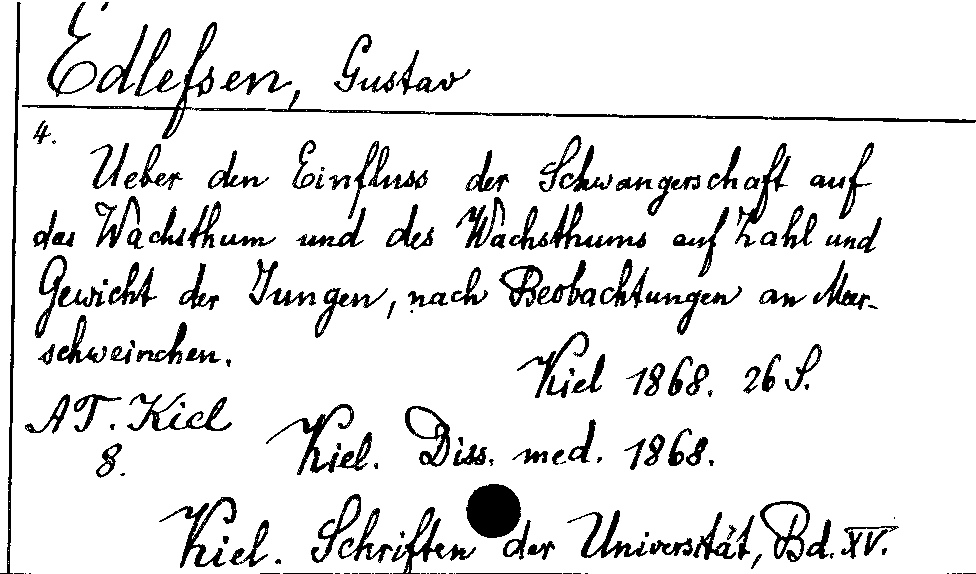 Edlefsen, Gustav
4.
Ueber den Einfluss der Schwangerschaft auf
das Wachsthum und des Wachsthums auf Zahl und
Gewicht der Jungen, nach Beobachtungen an Meer-
schweinchen.
Kiel 1868. 26 S.
AT. Kiel
8.
Kiel. Diss. med. 1868.
Kiel. Schriften der Universität, Bd. XV.